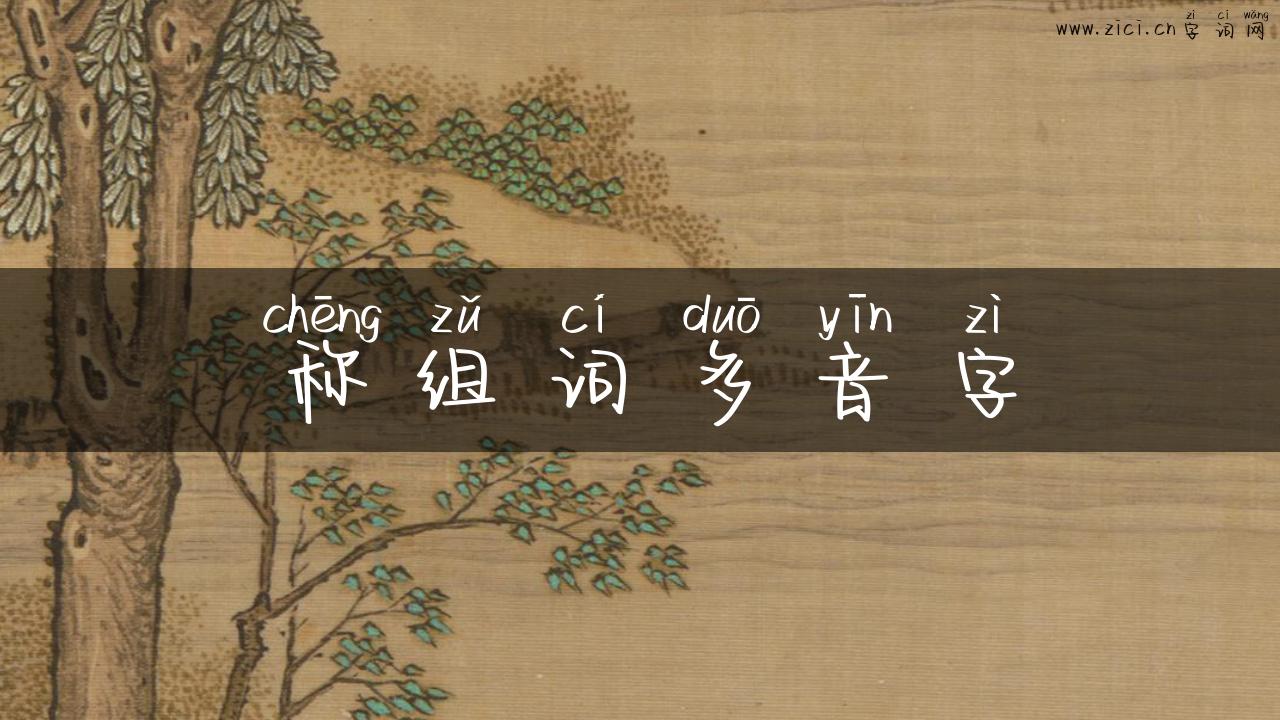 zì cí wǎng
www.zici.cn 字 词 网
chēng zǔ cí duō yīn zì
称 组 词 多 音 字